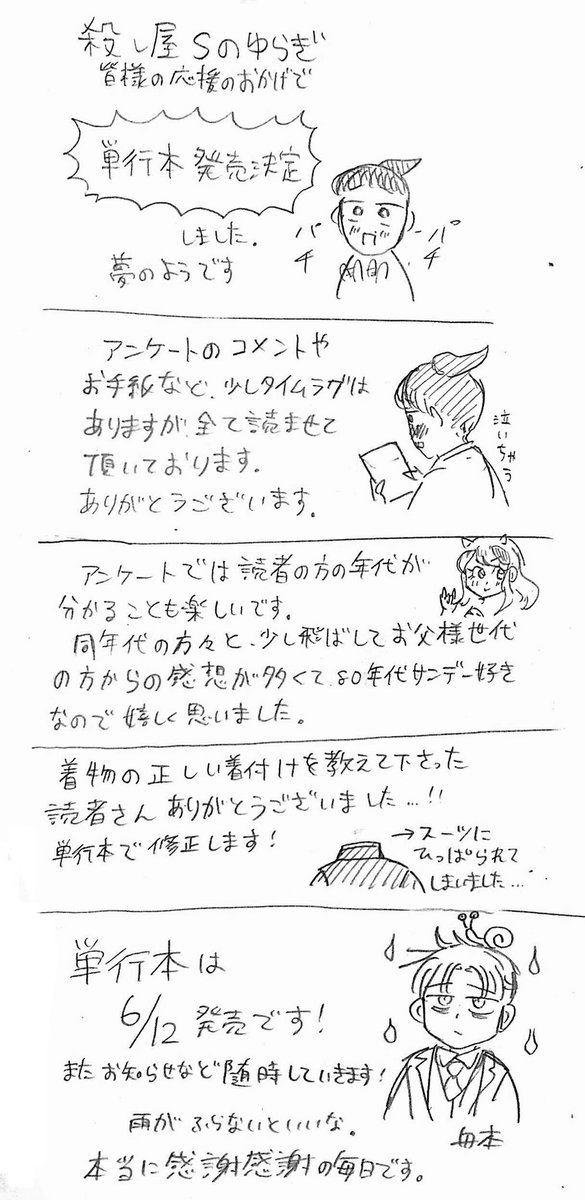 殺し屋Sのゆらぎ
皆様の応援のおかげで
単行本 発売決定
しました.
夢のようです
パチ
パチ
アンケートのコメントや
お手紙など、少しタイムラグは
ありますが、全て読ませて
頂いております.
ありがとうございます.
泣いちゃう
アンケートでは読者の方の年代が
分かることも楽しいです。
同年代の方々と、少し飛ばしてお父様世代
の方からの感想が多くて、80年代サンデー好き
なので嬉しく思いました。
着物の正しい着付けを教えて下さった
読者さんありがとうございました…!!
単行本で修正します!
→スーツに
ひっぱられて
しまいました…
単行本は
6/12 発売です!
またお知らせなど随時していきます!
雨がふらないといいな。
舟本
本当に感謝感謝の毎日です。